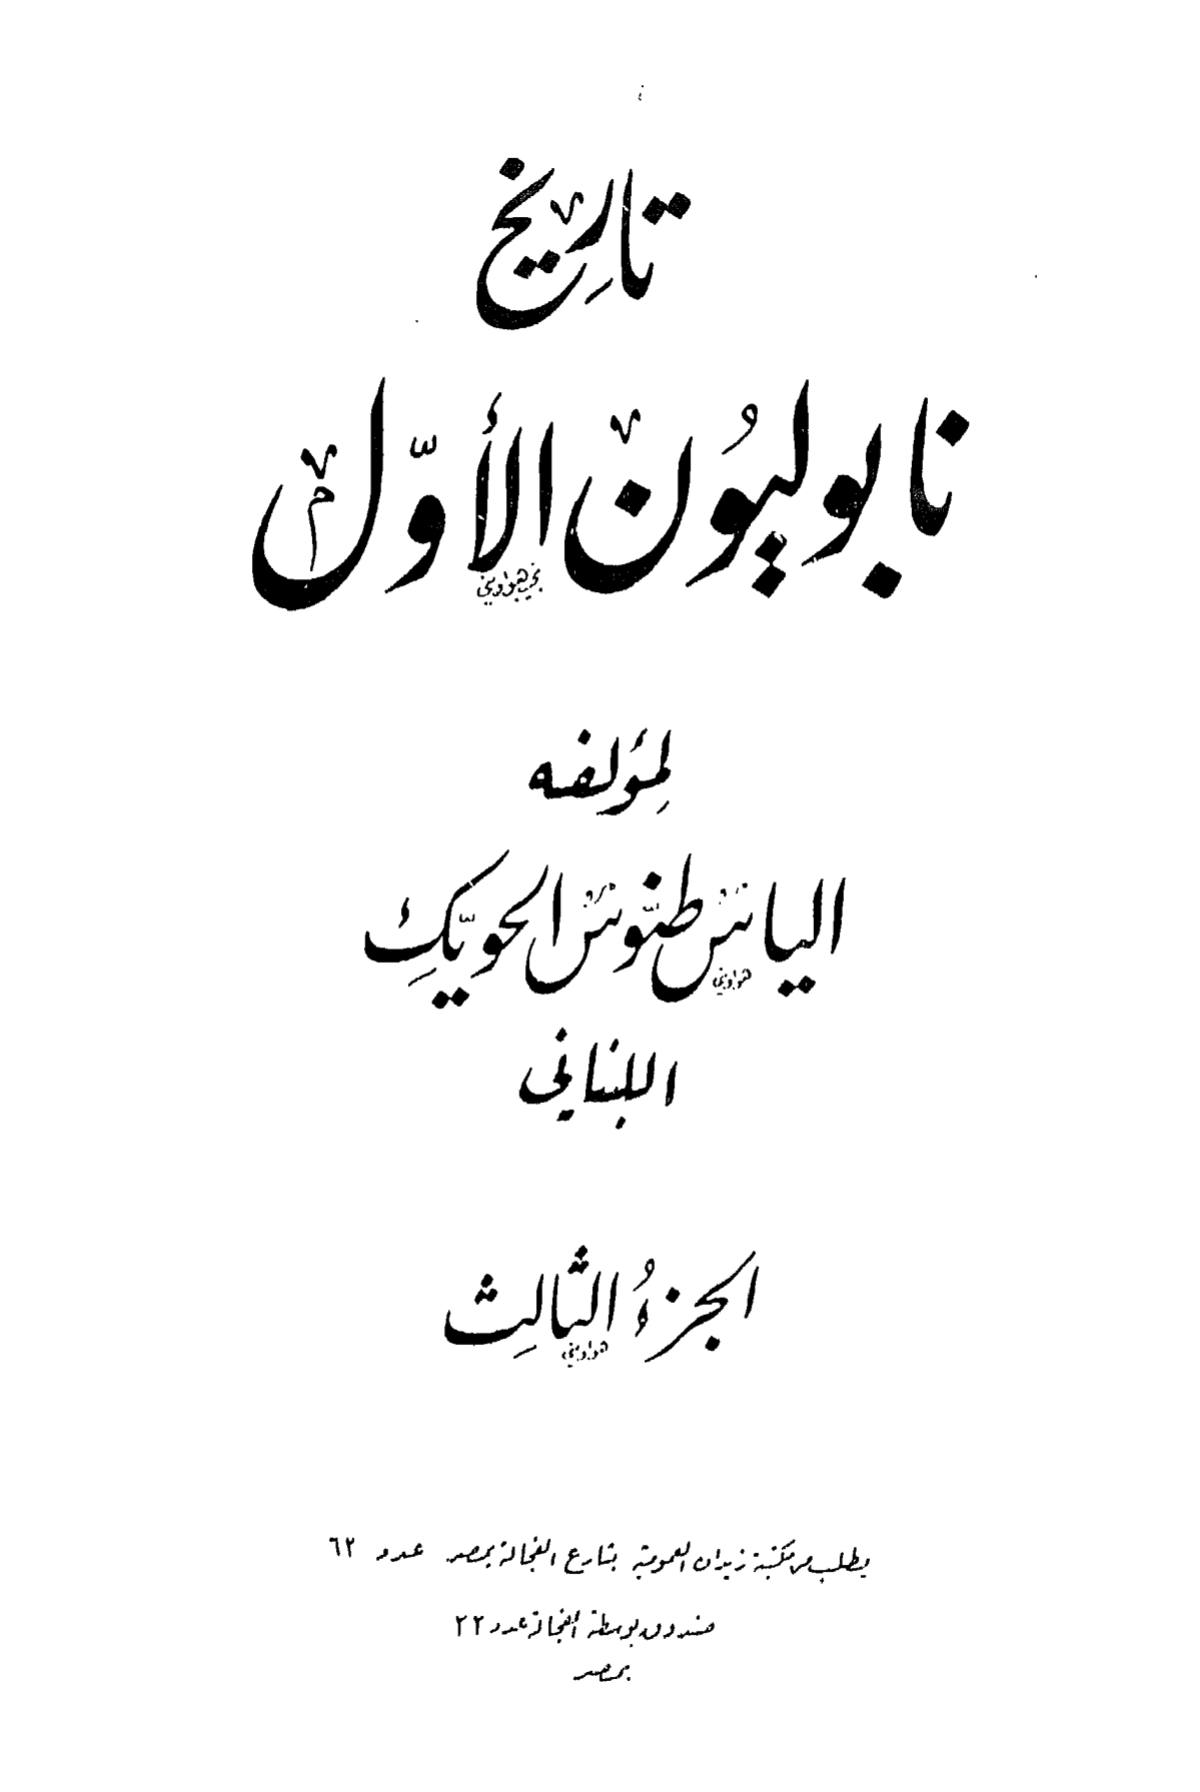 تاريخ
نابوليُون الأوّل
نجيب هواويني
لِمؤلفه
الياس طنّوس الحويّك
هواويني
اللبناني
الجزءُ الثالِث
هواويني
يطلب من مكتبة زيدان العمومية بشارع الفجالة بمصر عدد ٦٢
صندوق بوسطة الفجالة عدد ٢٢
بمصر